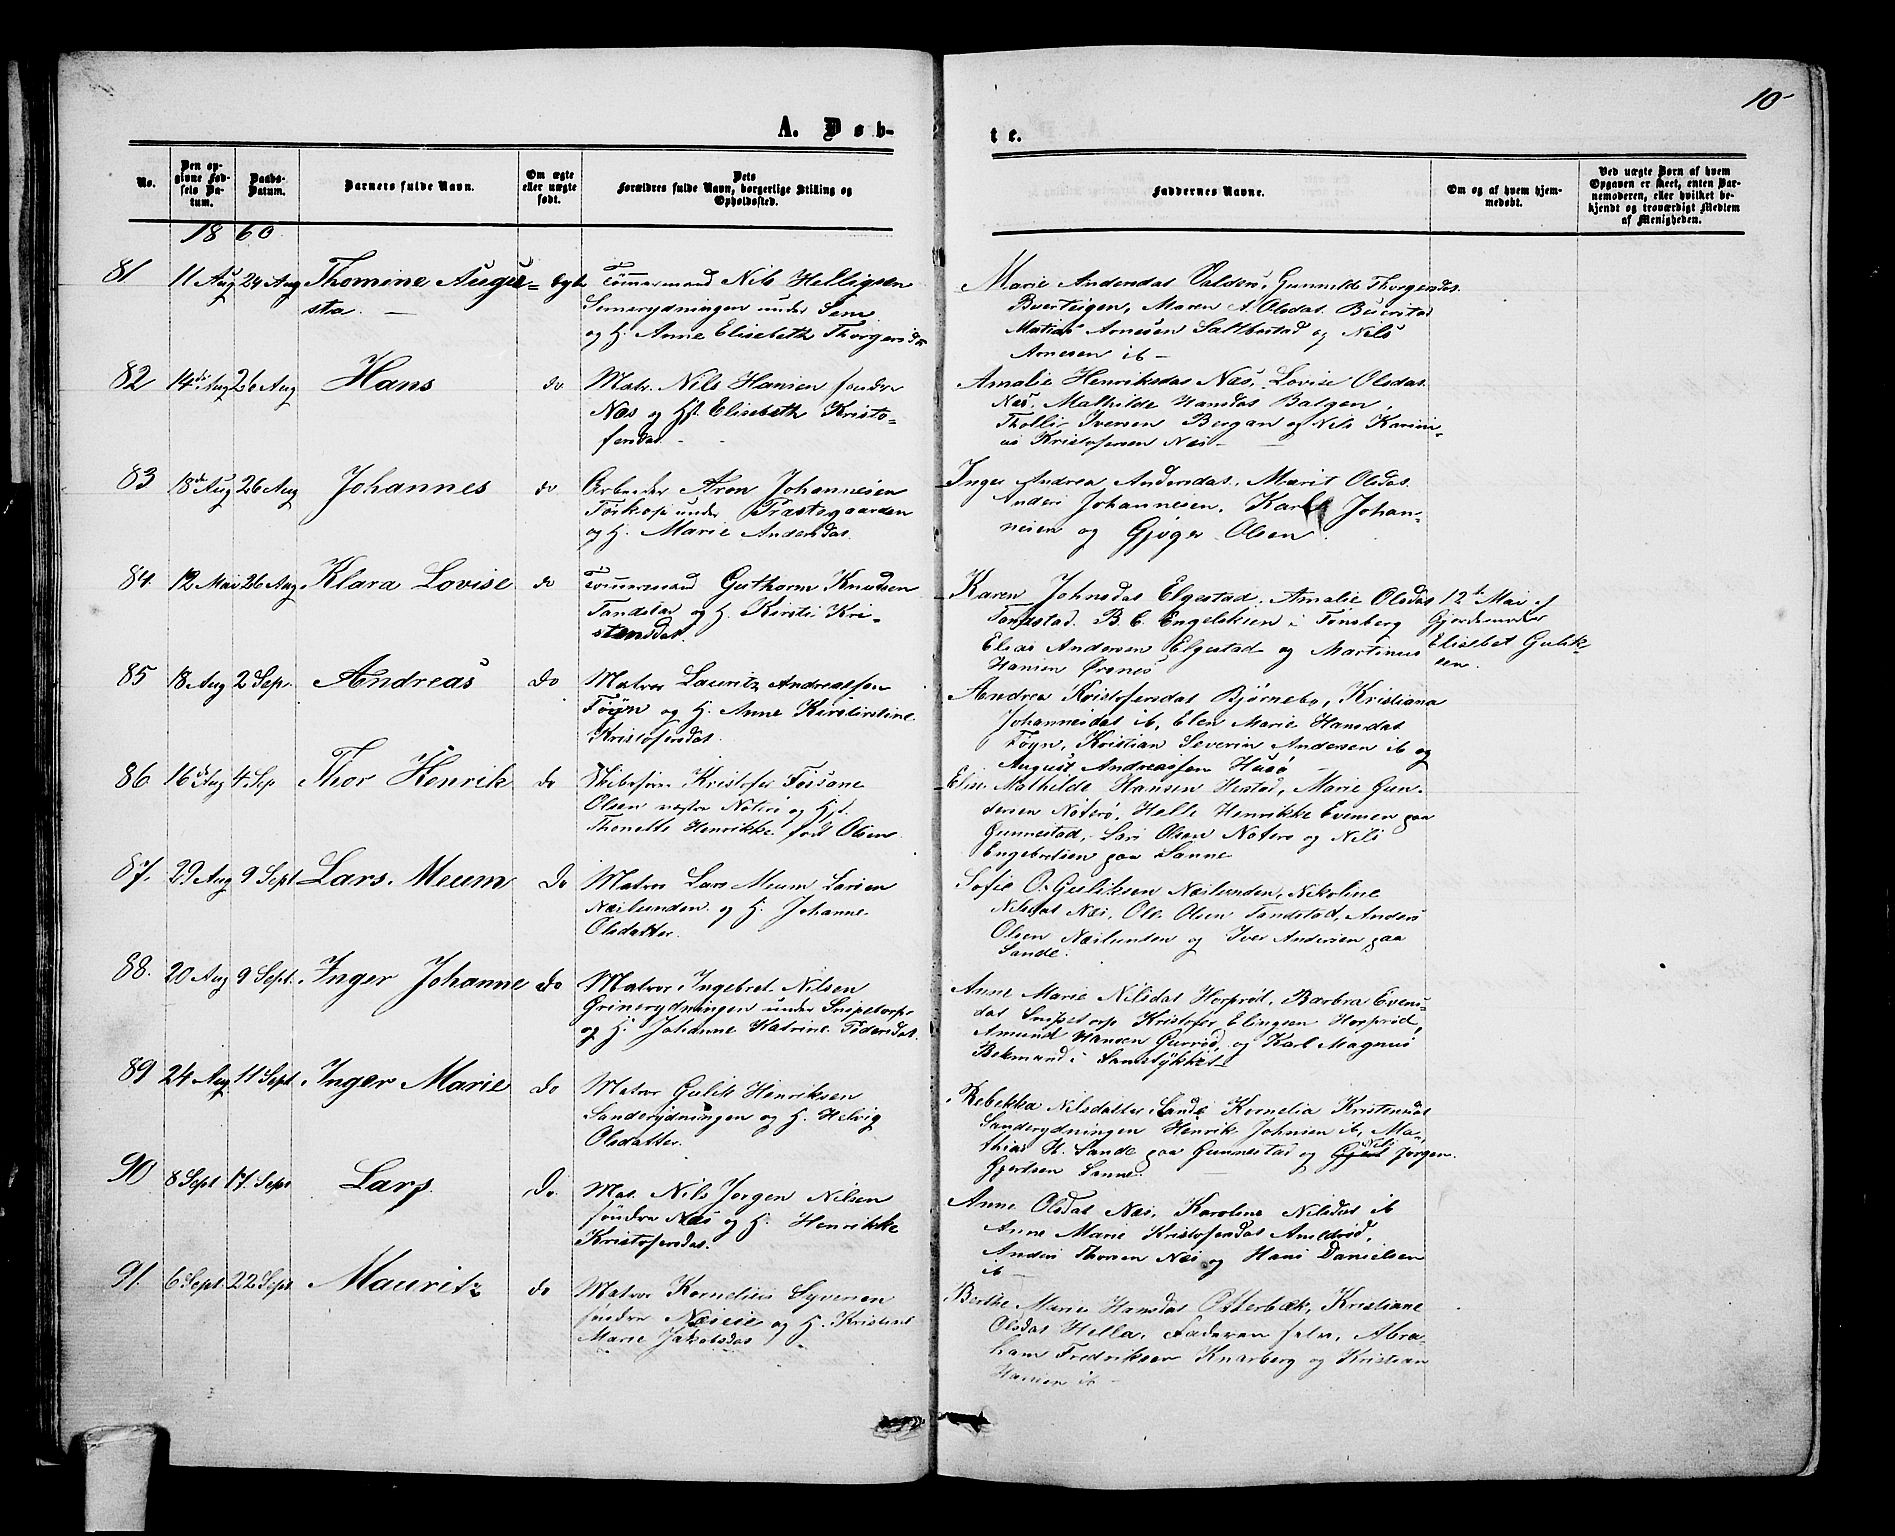 10
A. Døb-
te.
No.
Den op-
givne Fød-
sels Da-
tum.
Daabs-
Datum.
Barnets fulde Navn.
Om ægte
eller uægte
født.
Dets
Forældres fulde Navn, borgerlige Stilling og
Opholdssted.
Faddernes Navne.
Om og af hvem hjem-
medøbt.
Ved uægte Børn af hvem
Opgaven er skeet, enten Bar-
nemoderen, eller hvilket be-
kjendt og troværdigt Medlem
af Menigheden.
1860
81 11 Aug 24 Aug Thomine Augu=
sta.
egte
Tömmermand Nils Helligsen
Semsrydningen under Sem
og H. Anne Elisebeth Thorgersda
Marie Andersdat Gunnild Thorgersdat
Maren A. Olsdat
Matias Arnesen Saltbostad og Nils
Arnesen ib
82 14de Aug 26 Aug Hans do
Matr. Nils Hansen søndre
Næs og H. Elisebeth Kristo=
fersdat.
Amalie Henriksdat Næs, Lovise Olsdat
Næs, Mathilde Hansdat
Iversen Bergan og Nils Karini=
us Kristofersen Næs
83 18de Aug 26 Aug Johannes do
Arbeider Aron Johannesen
Torkop under Præstgaarden
og H. Marie Andersdat.
Inger Andrea Andersdat, Marit Olsdat.
Anders Johannesen, Karl Johan=
nesen og Gjøger Olsen.
84. 12 Mai 26 Aug Klara Lovise do
Tömmermand Guthorm Knudsen
Tandstad og H. Kirsti Kri=
stensdat.
Karen Johnsdat Elgestad, Amalie Olsdat
Tandstad. B. C. Engebksen i Tønsberg
Elias Andersen Elgestad og Martinus
Hansen Ørsnes
12te Mai af
Gjordemoder
Elisebet Gulik=
sen.
85 18 Aug 2 Sep. Andreas do
Matros Lauritz Andreassen
Föyn og H. Anne Kirstirstine
Kristofersdat.
Andrea Kristofersdat Bjørnebo, Kristiana
Johannesdat ib, Elen Marie Hansdat
Föyn, Kristian Severin Andersen ib og
August Andreassen Husø
86 16de Aug 4 Sep Thor Henrik do
Skibsfører Kristofer Fossane
Olsen og Hst.
Thonette Henrikke født Olsen.
Elise Mathilde Hansen Hestad, Marie Gun=
dersen Nøterø, Helle Henrikke Evensen paa
Gunnestad, Lars Olsen Nøterø og Nils
Engebretsen paa Sanne
87. 29 Aug 9 Sept Lars Meum do
Matros Lars Meum Larsen
Næslunden og H. Johanne
Olsdatter.
Sofie O. Guliksen Næslunden, Nikoline
Nilsdat Næs, Ole Olsen Tandstad, Anders
Olsen Næslunden og Iver Andersen paa
Sande.
88. 20 Aug 9 Sept. Inger Johanne do
Matros Ingebret Nilsen
Grinerydningen under Snipetorp
og H. Johanne Katrine Pedersdat.
Anne Marie Nilsdat Horprød, Barbra Evens=
dat Snipetorp Kristofer Elingsen Horprød,
Amund Hansen og Karl Magnus
Bekmand i
89 24 Aug 11 Sept. Inger Marie do
Matros Gulik Henriksen
Sanderydningen og H. Helvig
Olsdatter.
Rebekka Nilsdatter Sande Kornelia Kristensdat
Sanderydningen Henrik Johnsen ib, Ma=
thias H. Sande paa Gunnestad og Nils Jorgen
Gjertsen Sanne.
90 8 Sept 17. Sept Lars. do
Mat. Nils Jorgen Nilsen
søndre Næs og H. Henrikke
Kristofersdat.
Anne Olsdat Næs, Karoline Nilsdat ib
Anne Marie Kristofersdat Amlerød,
Anders Thorsen Næs og Hans Danielsen
ib
91. 6 Sept. 22 Sept Mauritz do
Matros Kornelius Syversen
søndre og H. Kristine
Marie Jakobsdat
Berthe Marie Hansdat Otterbæk, Kristiane
Olsdat Hella, Faderen selv, Abra=
ham Fredriksen Knarberg og Kristian
Hansen ib